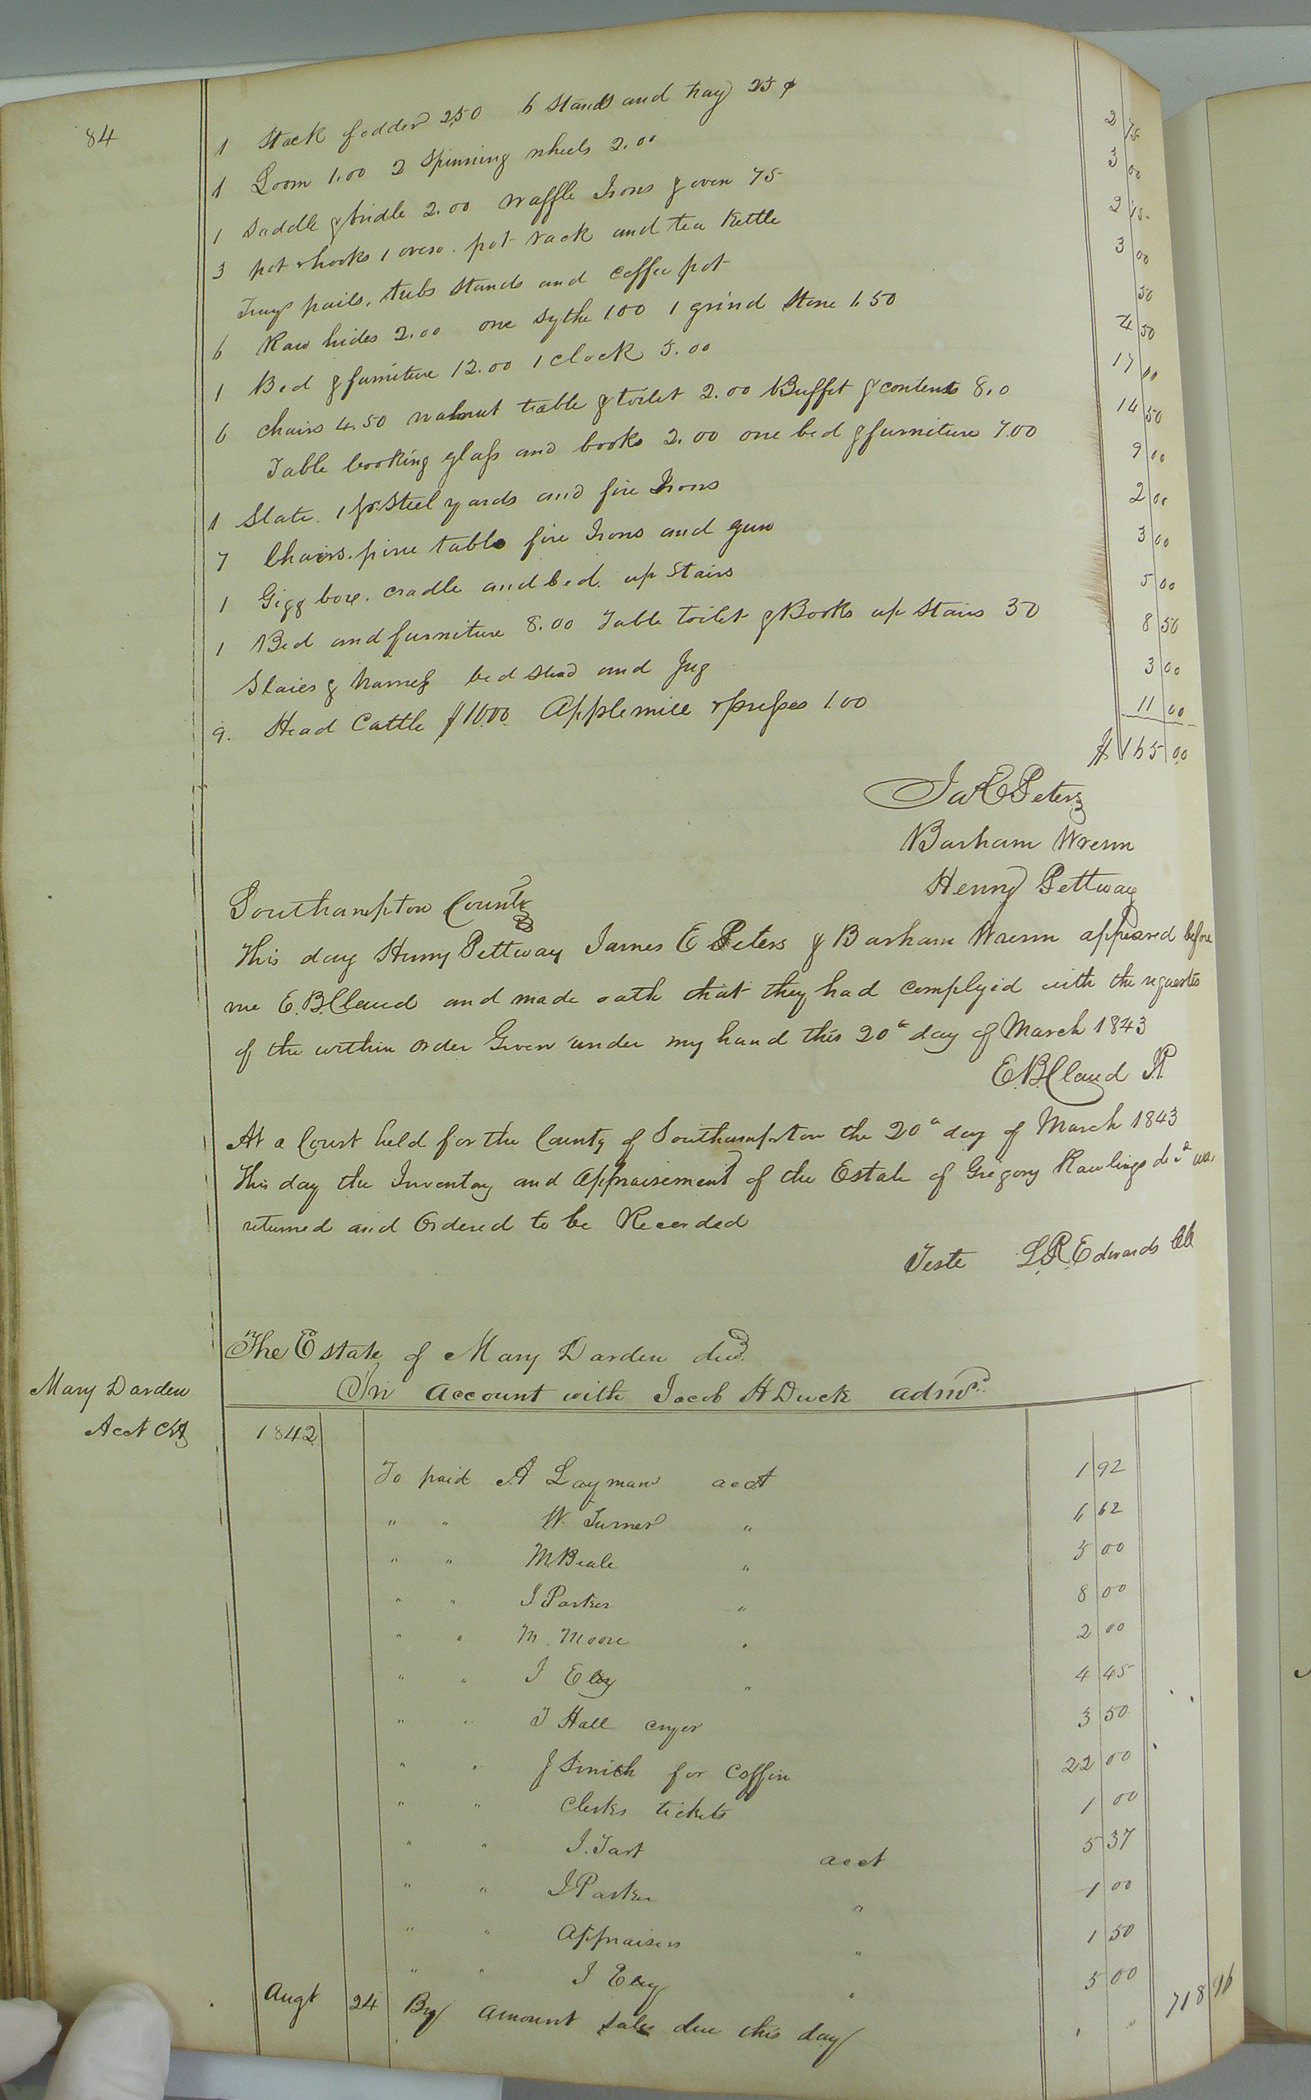 84
1 Stack fodder 2,50 6 Stands and hay 25 ¢ 2 75
1 Loom 1.00 2 Spinning wheels 2.00 3 00
1 Saddle & bridle 2.00 Waffle Irons & oven 75 2 75
3 pot & hooks 1 oven. pot rack and tea Kettle 3 00
Trays pails, tubs Stands and coffee pot 50
6 Raw hides 2.00 one Sythe 1.00 1 grind Stone 1.50 4 50
1 Bed & furniture 12.00 1 Clock 5.00 17 00
6 chairs 4.50 walnut table & toilet 2.00 Buffet & contents 8.0 14 50
Table looking glass and books 2.00 one bed & furniture 7.00 9 00
1 Slate. 1 pr Steel yards and fire Irons 2 00
7 Chairs. pine table fire Irons and gun 3 00
1 Gigg box. cradle and bed. up Stairs 5 00
1 Bed and furniture 8.00 Table toilet & Books up Stairs 50 8 50
Slaies & harness bed Stead and Jug 3 00
9. Head Cattle $10.00 Applemill & presses 1.00 11 00
$ 165 00
Jas E Peters
Barham Wrenn
Henry Pettway
Southampton County
This day Henry Pettway James E Peters & Barham Wrenn appeared before
me E. B. Claud and made oath that they had complyid with the requestes
of the within order Given under my hand this 20th day of March 1843
E. B. Claud J.P.
At a Court held for the County of Southampton the 20th day of March 1843
This day the Inventory and Appraisement of the Estate of Gregory Rawlings decd was
returned and Ordered to be Recorded
Teste L. R. Edwards Clk
The Estate of Mary Darden decd.
Mary Darden
In account with Jacob H Duck admr.
Acct Ct
1842
To paid A Layman acct 1 92
" " W. Turner " 6 62
" " M. Beale " 5 00
" " J Parker " 8 00
" " M. Moore " 2 00
" " J Eley " 4 45
" " J Hall cryor 3 50
" " for Coffin 22 00
" " Clerks tickets 1 00
" " J. Tart acct 5 37
" " J Parker " 1 00
" " Appraisers " 1 50
" " J Eley " 5 00
Augt 24 By amount Sales due this day " " 718 96